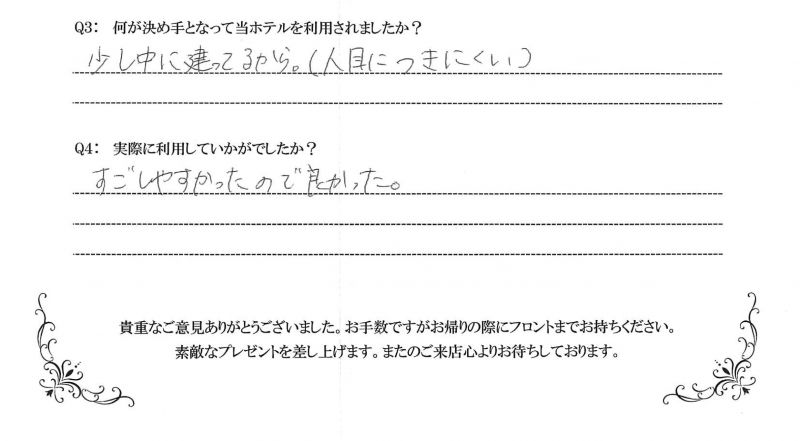 Q3： 何が決め手となって当ホテルを利用されましたか？
少し中に建ってるから。(人目につきにくい)
Q4： 実際に利用していかがでしたか？
すごしやすかったので良かった。
貴重なご意見ありがとうございました。お手数ですがお帰りの際にフロントまでお持ちください。
素敵なプレゼントを差し上げます。またのご来店心よりお待ちしております。